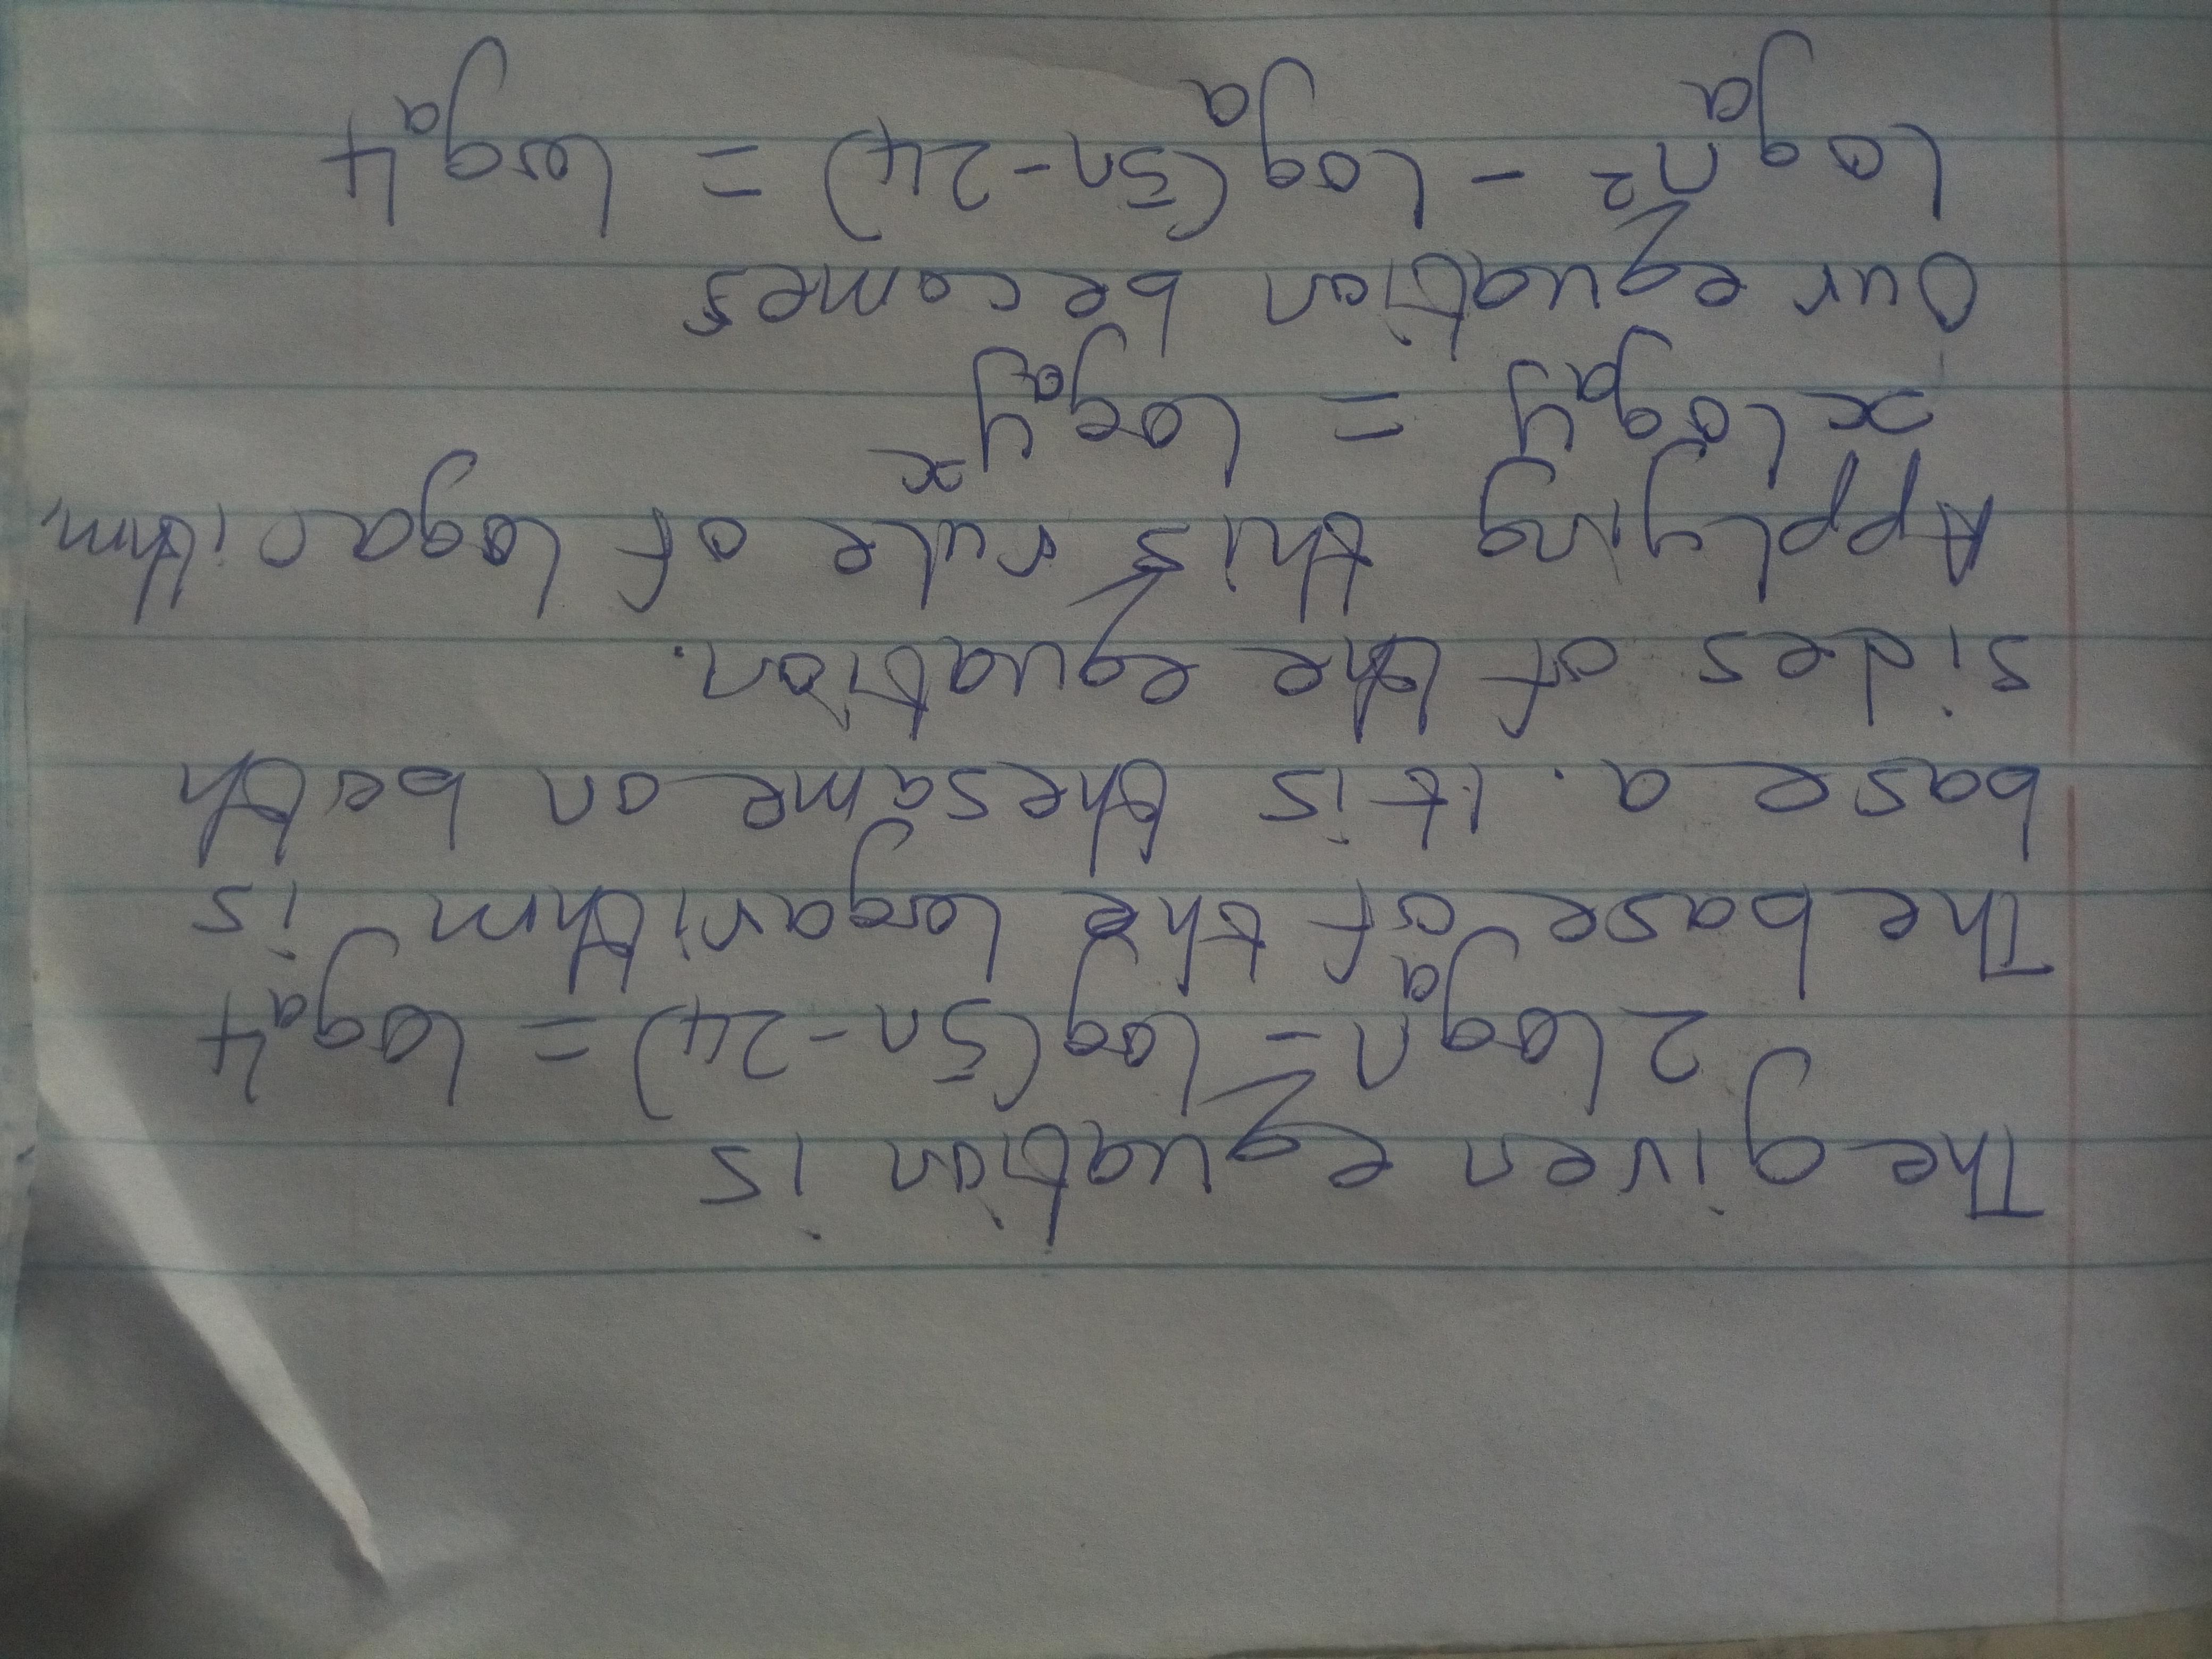 The given equation is
2 logₐn - logₐ(5n-24) = logₐ4
The base of the logarithm is
base a. It is thesame on both
sides of the equation.
Applying this rule of logarithm,
x logₐy = logₐyˣ
Our equation becomes
logₐn² - logₐ(5n-24) = logₐ4